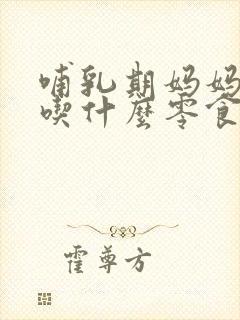 哺乳期妈妈
喫什麼零食
霍尊方